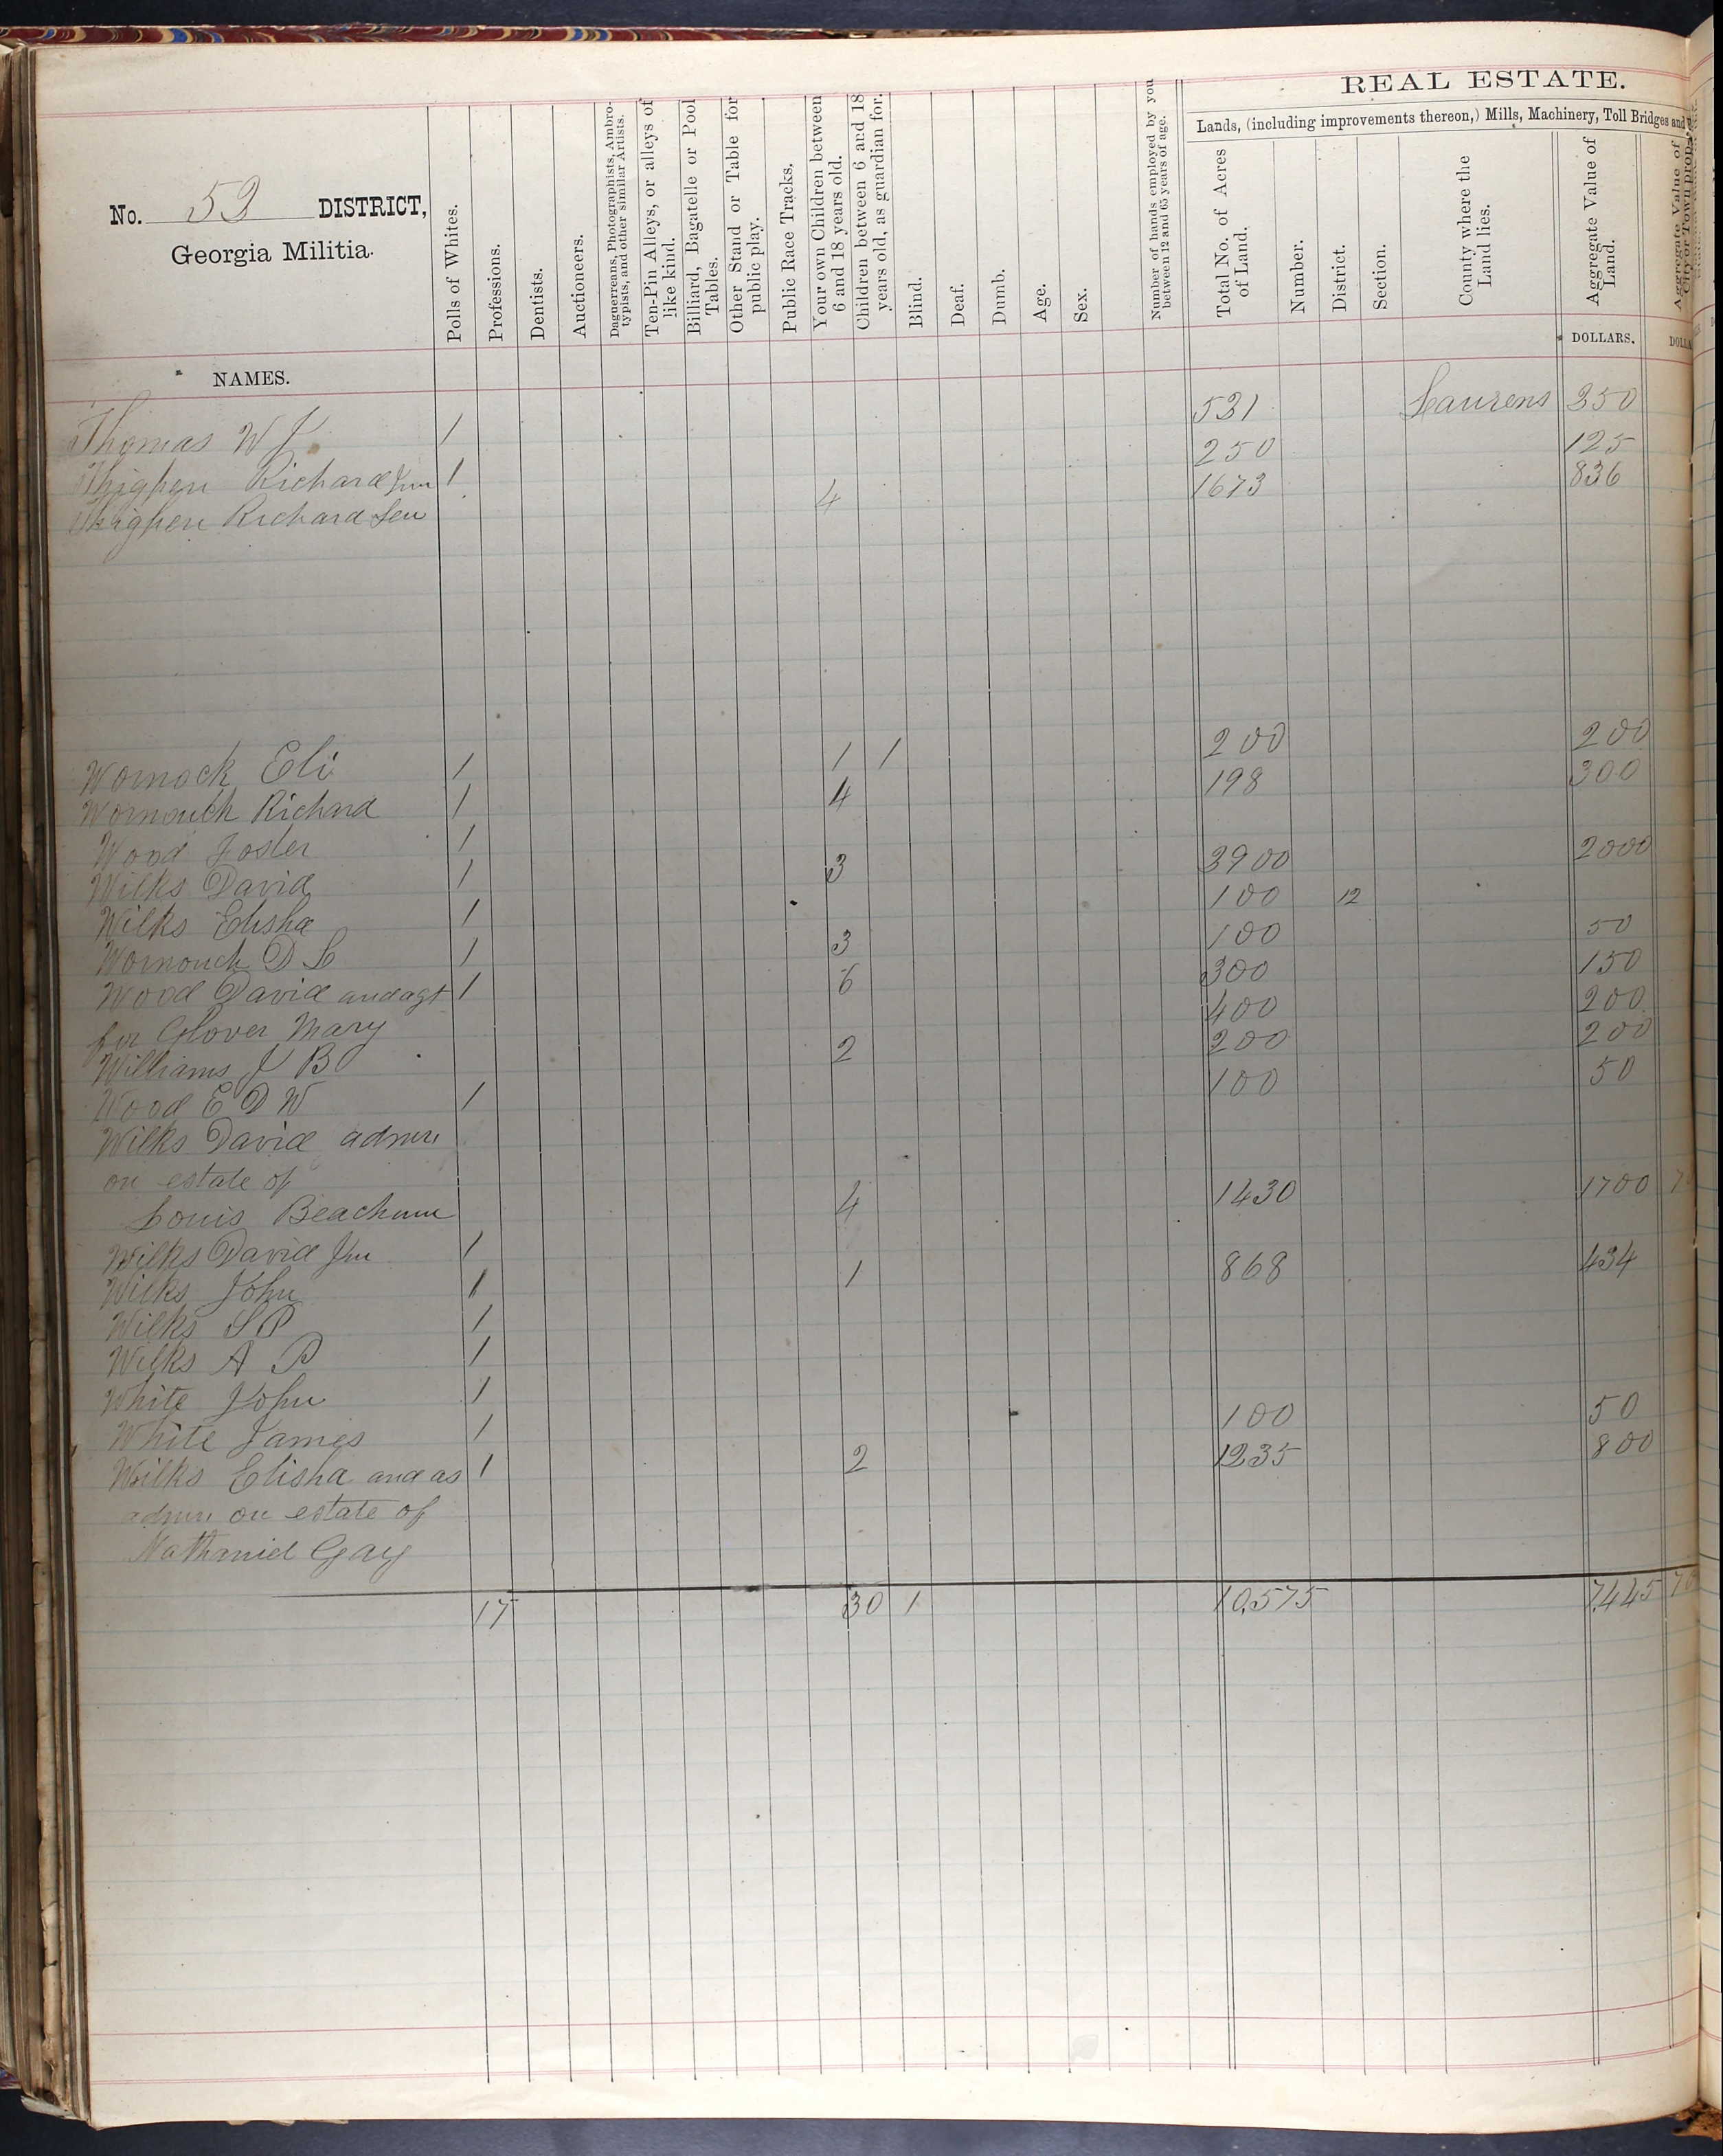 REAL ESTATE.
Lands, (including improvements thereon,) Mills, Machinery, Toll Bridges and
No. 52 DISTRICT,
Georgia Militia.
NAMES.
Polls of Whites.
Professions.
Dentists.
Auctioneers.
Daguerreans, Photographists, Ambro-
typists, and other similar Artists.
Ten-Pin Alleys, or alleys of
like kind.
Billiard, Bagatelle or Pool
Tables.
Other Stand or Table for
public play.
Public Race Tracks.
Your own Children between
6 and 18 years old.
Children between 6 and 18
years old, as guardian for.
Blind.
Deaf.
Dumb.
Age.
Sex.
Number of hands employed by you
between 12 and 65 years of age.
Total No. of Acres
of Land.
Number.
District.
Section.
County where the
Land lies.
Aggregate Value of
Land.
DOLLARS.
Aggregate Value of
City or Town prop
DOLLA
Thomas W J 1 531 Laurens 350
Thigpen Richard Jun 1 250 125
Thigpen Richard Sen 4 1673 836
Wornack Eli 1 1 1 200 200
Wornouch Richard 1 4 198 300
Wood Foster 1
Wilks David 1 3 3900 2000
Wilks Elisha 1 100 12
Wornouch D L 1 3 100 50
Wood David and agt 1 6 300 150
for Glover Mary 400 200
Williams J B 2 200 200
Wood E D W 1 100 50
Wilks David admr
on estate of
Louis Beachum 4 1430 1700 7
Wilks David Jun 1
Wilks John 1 1 868 434
Wilks S P 1
Wilks A P 1
White John 1
White James 1 100 50
Wilks Elisha and as 1 2 1235 800
admr on estate of
Nathaniel Gay
17 30 1 10,575 7,445 7